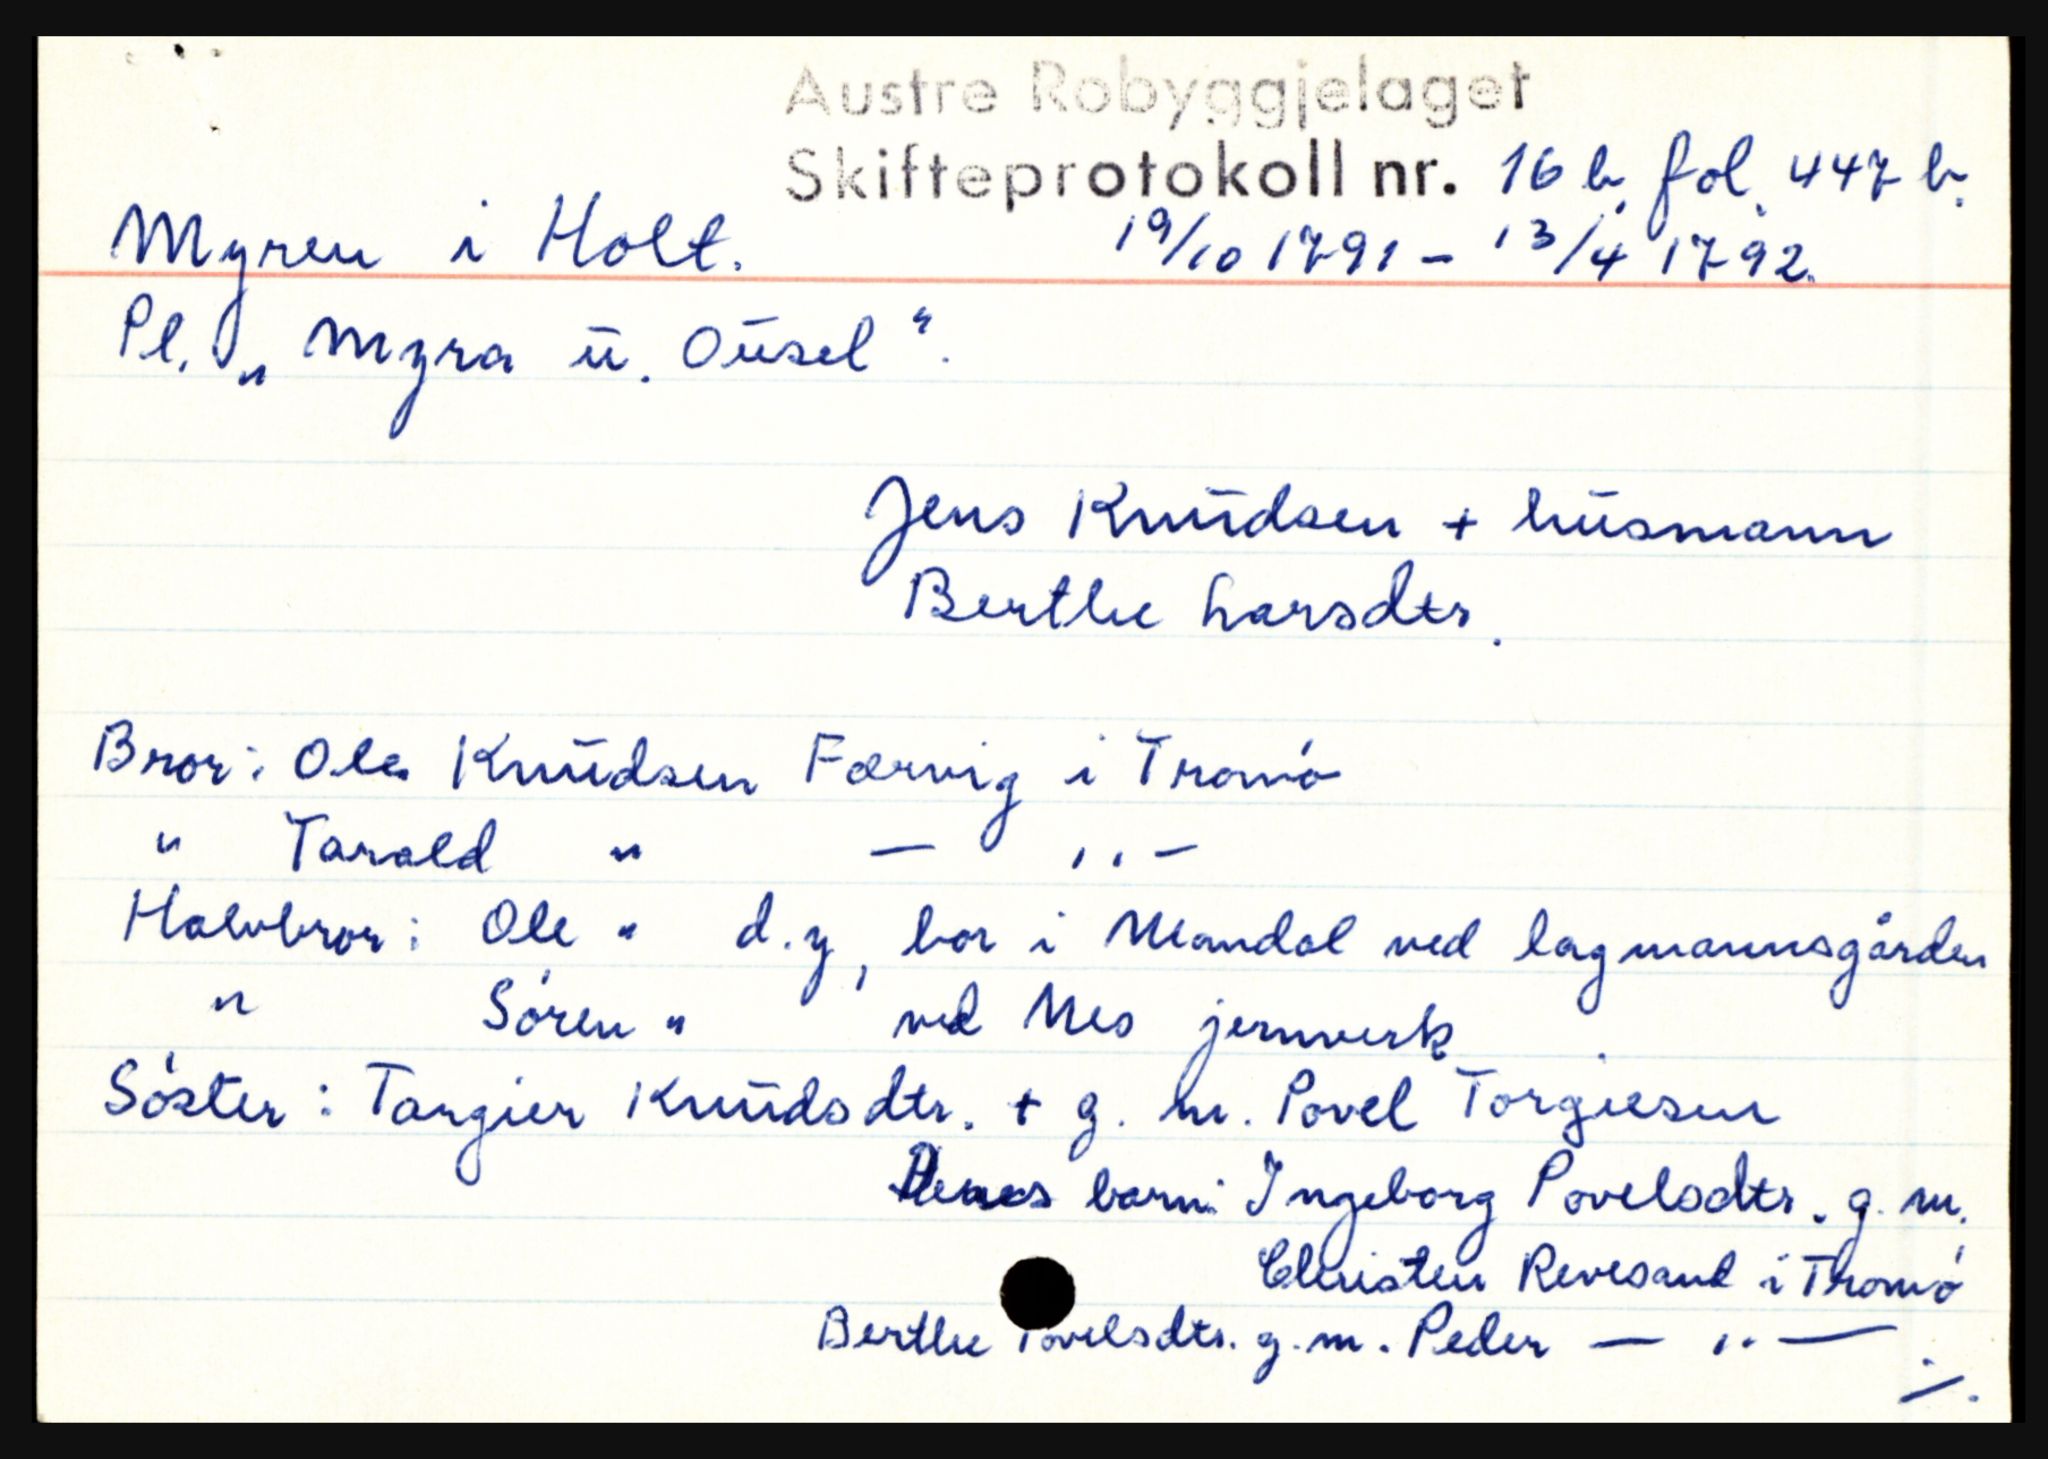 Austre Robyggjelaget
Skifteprotokoll nr. 16 b. fol. 447 b.
Myren i Holt. 19/10 1791 - 13/4 1792.
Pl. „ Myra ū. Oūsel “.
Jens Knūdsen + hūsmann
Berthe Larsdtr.
Bror: Ole Knūdsen Færvig i Tromó
" Tarald " — ,,—
Halvbror: Ole " d.y, bor i Mandal ved lagmannsgården
" Sóren " ved Nes jernverk.
Sóster: Tangier Knūdsdtr. + g. m. Povel Torgiesen
barn: Ingeborg Povelsdtr. g. m.
Christen Revesand i Tromó
Berthe Povelsdtr. g. m. Peder — ,, —
./.